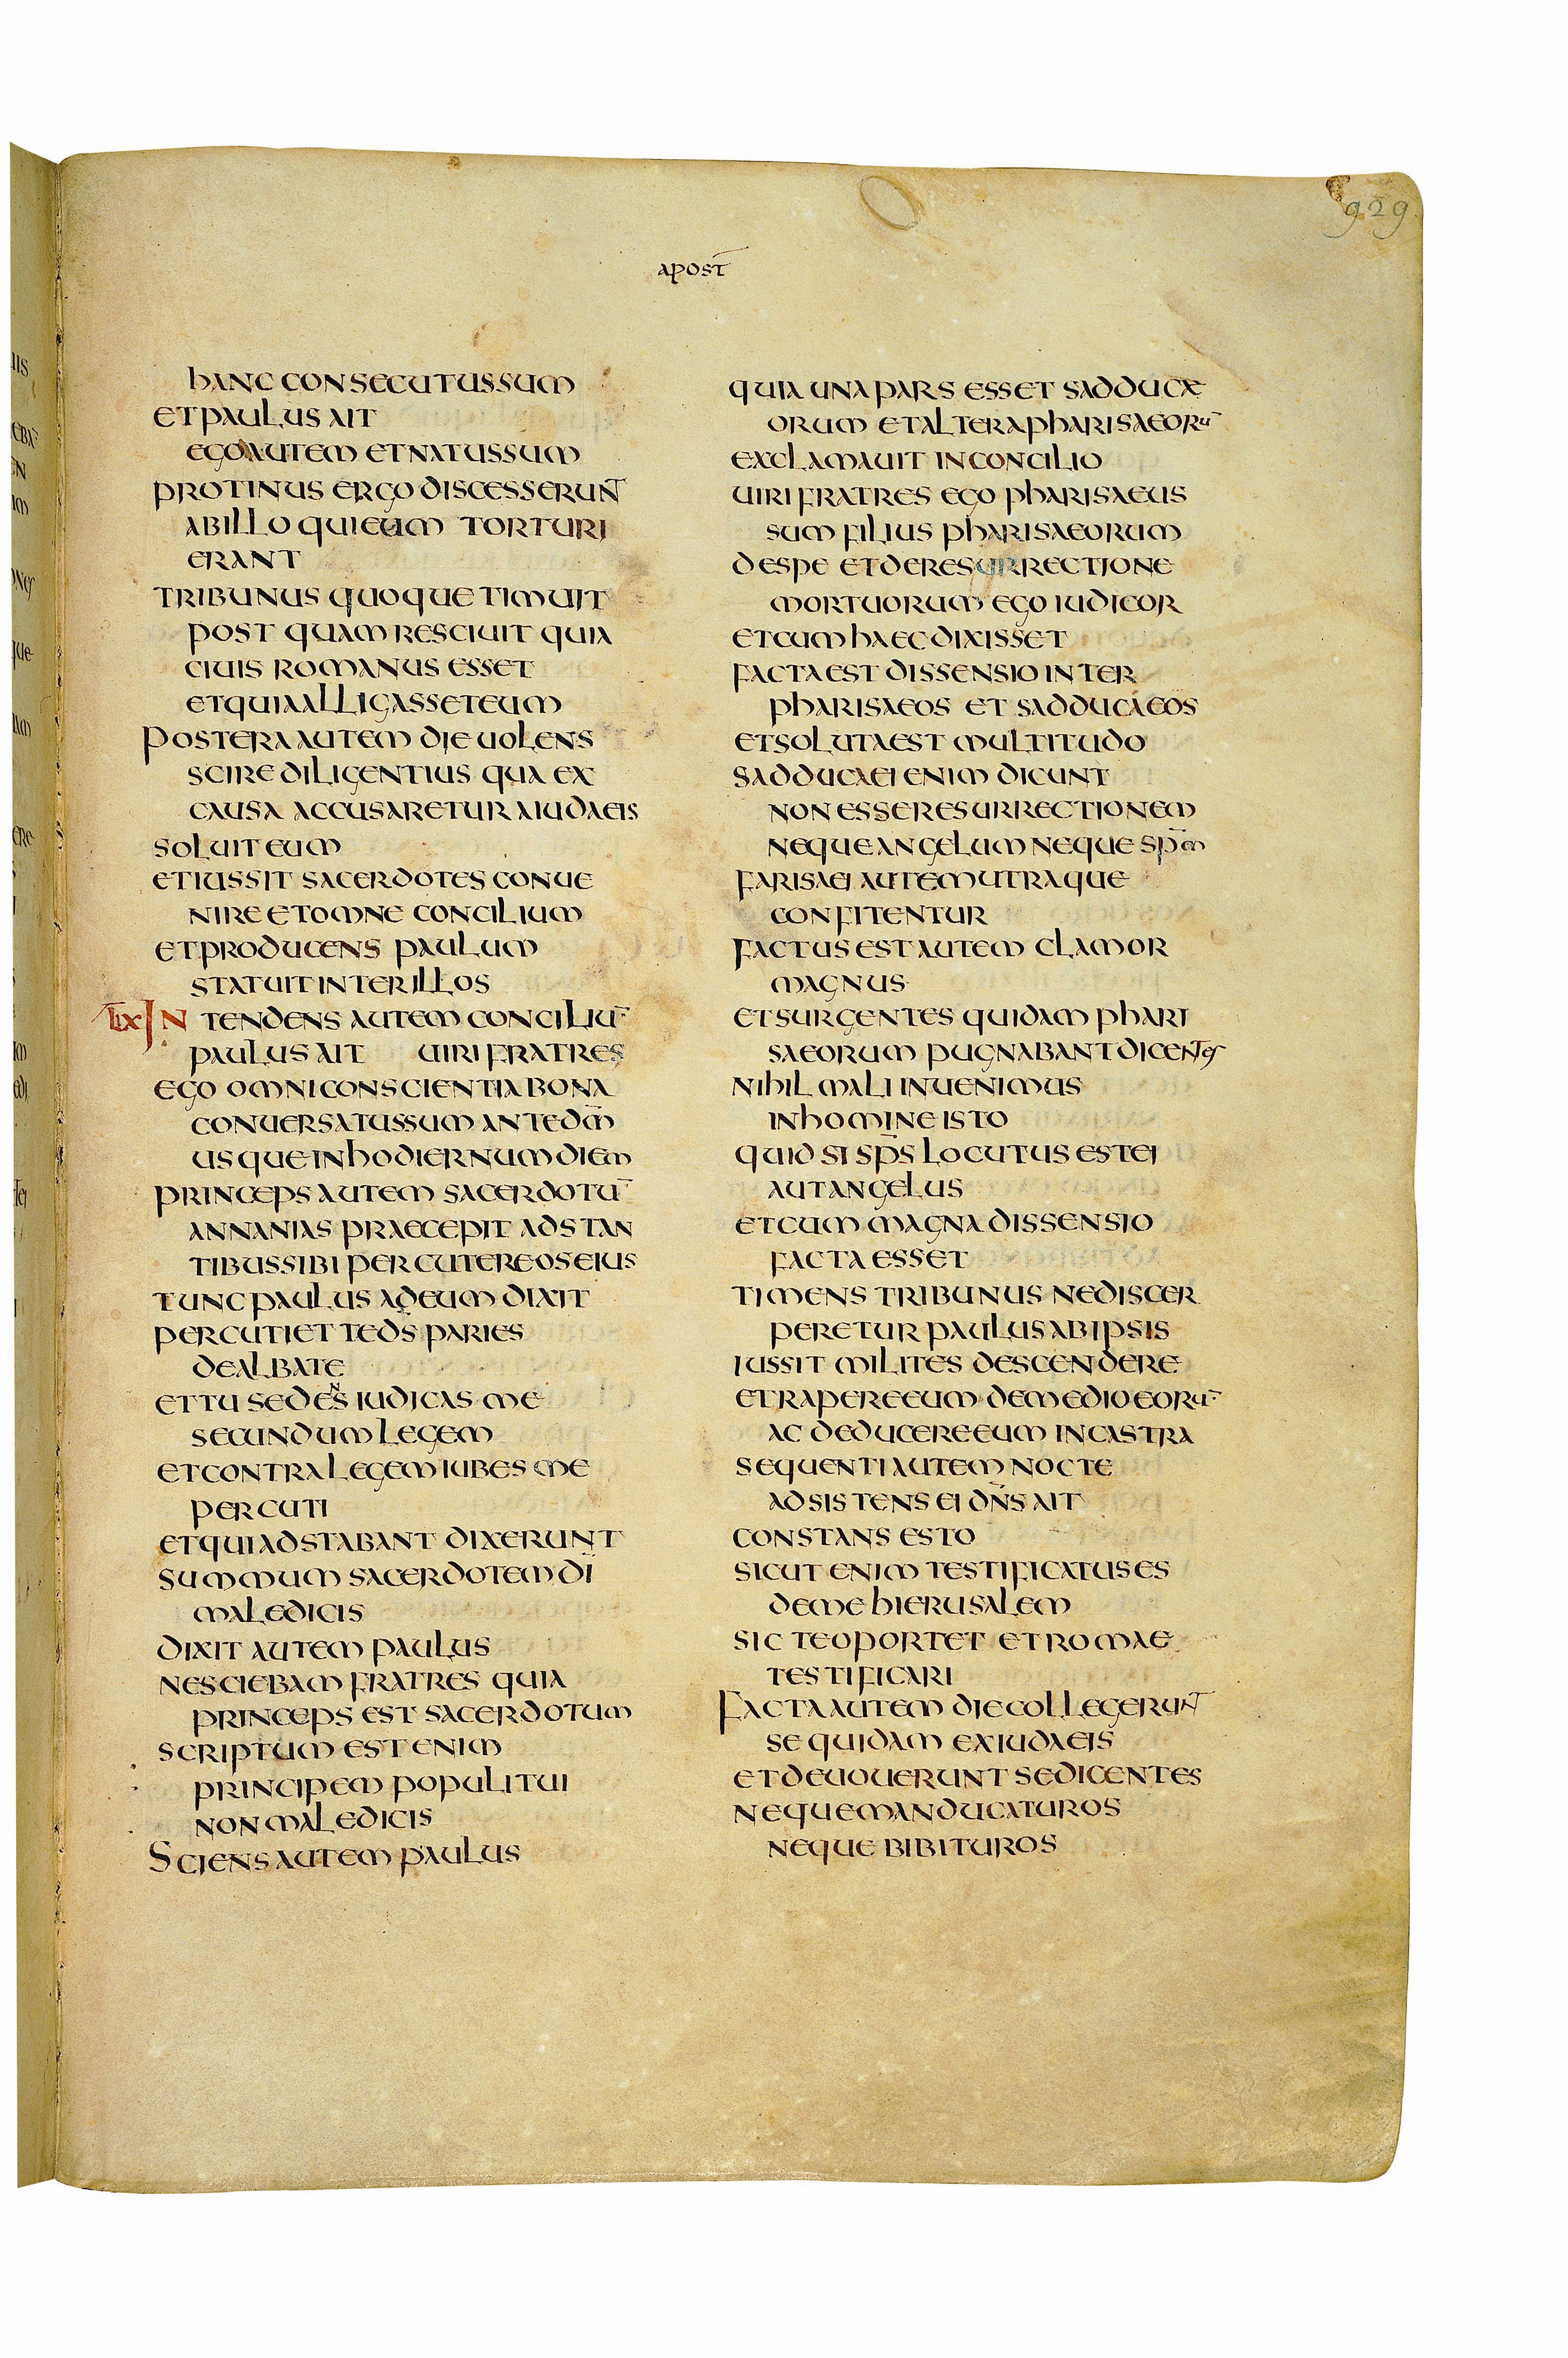 929
apost̄
hanc consecutus sum
et paulus ait
ego autem et natus sum
protinus ergo discesserun̄t
ab illo qui eum torturi
erant
tribunus quoque timuit
post quam resciuit quia
ciuis romanus esset
et quia alligasset eum
Postera autem die uolens
scire diligentius qua ex
causa accusaretur a iudaeis
soluit eum
et iussit sacerdotes conue
nire et omne concilium
et producens paulum
statuit inter illos
LIX In tendens autem conciliū
paulus ait uiri fratres
ego omni conscientia bona
conuersatus sum ante dm̄
usque in hodiernum diem
princeps autem sacerdotū
annanias praecepit adstan
tibus sibi percutere os eius
tunc paulus ad eum dixit
percutiet te ds̄ paries
dealbate
et tu sedens iudicas me
secundum legem
et contra legem iubes me
percuti
et qui adstabant dixerunt
summum sacerdotem dī
maledicis
dixit autem paulus
nesciebam fratres quia
princeps est sacerdotum
scriptum est enim
principem populi tui
non maledicis
Sciens autem paulus
quia una pars esset sadducae
orum et altera pharisaeorū
exclamauit in concilio
uiri fratres ego pharisaeus
sum filius pharisaeorum
de spe et de resurrectione
mortuorum ego iudicor
et cum haec dixisset
facta est dissensio inter
pharisaeos et sadducaeos
et soluta est multitudo
sadducaei enim dicunt
non esse resurrectionem
neque angelum neque sp̄m
farisaei autem utraque
confitentur
factus est autem clamor
magnus
et surgentes quidam phari
saeorum pugnabant dicentes
nihil mali inuenimus
in homine isto
quid si sp̄s locutus est ei
aut angelus
et cum magna dissensio
facta esset
timens tribunus ne discer
peretur paulus ab ipsis
iussit milites descendere
et rapere eum de medio eorū
ac deducere eum in castra
sequenti autem nocte
adsistens ei dn̄s ait
constans esto
sicut enim testificatus es
de me hierusalem
sic te oportet et romae
testificari
Facta autem die collegerun̄t
se quidam ex iudaeis
et deuouerunt se dicentes
neque manducaturos
neque bibituros